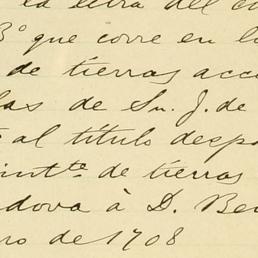 la letra del
3º que corre en la
de tierras acc
las de Sn. J. de
al título desp
int.º de tierras
dova à D. Be
ro de 1708